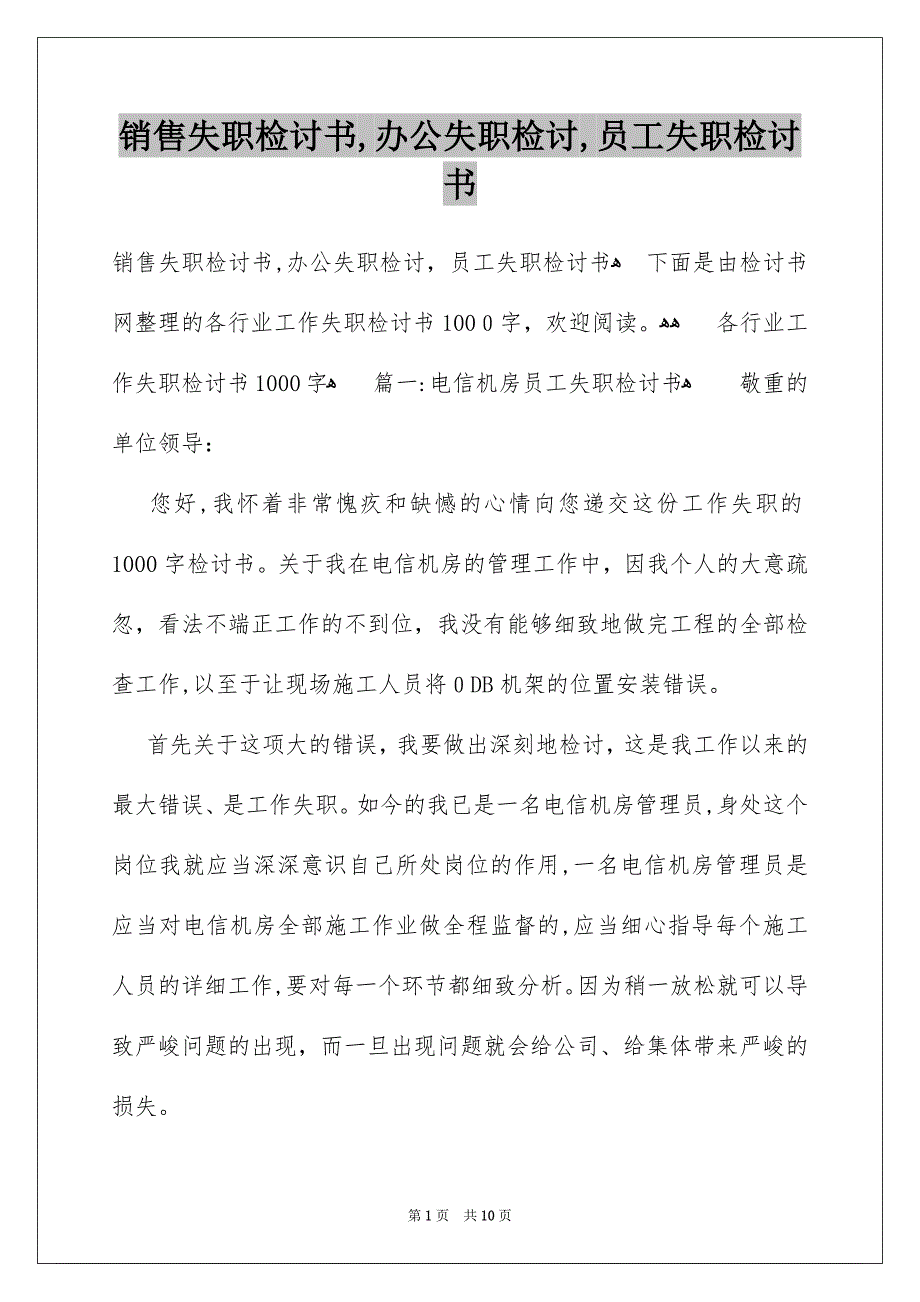 销售失职检讨书,办公失职检讨,员工失职检讨
书
销售失职检讨书,办公失职检讨，员工失职检讨书ﻫ 下面是由检讨书
网整理的各行业工作失职检讨书100 0字，欢迎阅读。ﻫﻫ 各行业工
作失职检讨书1000字ﻫ 篇一:电信机房员工失职检讨书ﻫ 敬重的
单位领导：
您好,我怀着非常愧疚和缺憾的心情向您递交这份工作失职的
1000字检讨书。关于我在电信机房的管理工作中，因我个人的大意疏
忽，看法不端正工作的不到位，我没有能够细致地做完工程的全部检
查工作,以至于让现场施工人员将0 DB机架的位置安装错误。
首先关于这项大的错误，我要做出深刻地检讨，这是我工作以来的
最大错误、是工作失职。如今的我已是一名电信机房管理员,身处这个
岗位我就应当深深意识自己所处岗位的作用,一名电信机房管理员是
应当对电信机房全部施工作业做全程监督的,应当细心指导每个施工
人员的详细工作,要对每一个环节都细致分析。因为稍一放松就可以导
致严峻问题的出现，而一旦出现问题就会给公司、给集体带来严峻的
损失。
第 1 页 共 10 页